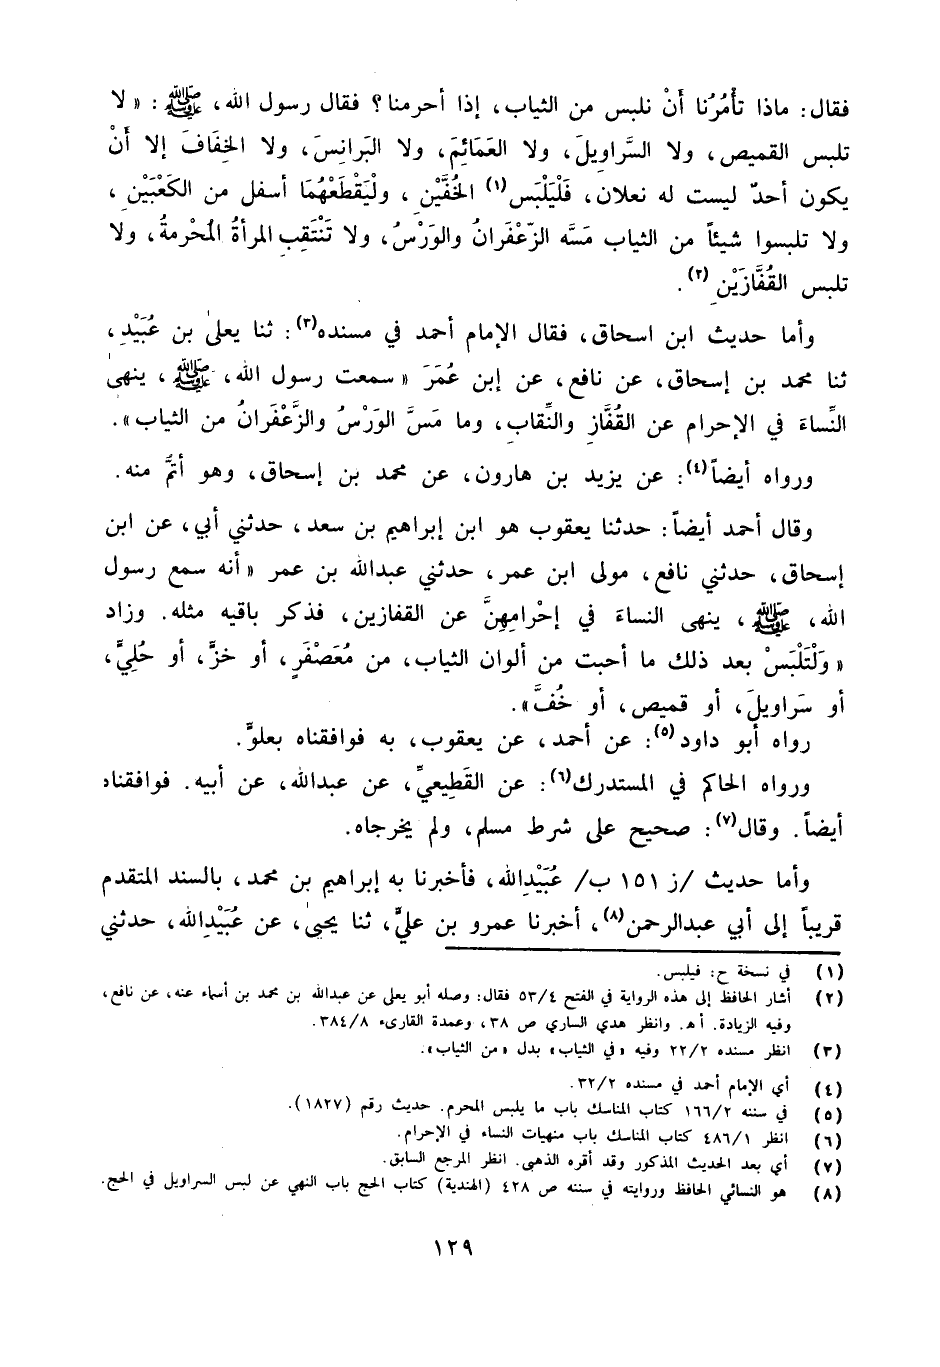 فقال: ماذا تأْمُرُنا أَنْ نلبس من الثياب، إذا أحرمنا؟ فقال رسول الله، ﷺ: «لا
تلبس القميص، ولا السَّراويلَ، ولا العَمَائِمَ، ولا البَرانِسَ، ولا الخِفَافَ إلا أَنْ
يكون أحدٌ ليست له نعلان، فَلْيَلْبَس(١) الخُفَّيْنِ، ولْيَقْطَعْهُمَا أسفل من الكَعْبَيْنِ،
ولا تلبسوا شيئاً من الثياب مَسَّه الزّعْفَرانُ والوَرْسُ، ولا تَنْتَقِبِ المرأةُ المُحْرمةُ، ولا
تلبس القُفَّازَيْنِ(٢).
وأما حديث ابن اسحاق، فقال الإمام أحمد في مسنده(٣): ثنا يعلىٰ بن عُبَيْدِ،
ثنا محمد بن إسحاق، عن نافع، عن إبن عُمَرَ «سمعت رسول الله، ﷺ، ينهىٰ
النِّساءَ في الإحرام عن القُفَّازِ والنِّقابِ، وما مَسَّ الوَرْسُ والزَّعْفَرانُ من الثياب».
ورواه أيضاً(٤): عن يزيد بن هارون، عن محمد بن إسحاق، وهو أتمُّ منه.
وقال أحمد أيضاً: حدثنا يعقوب هو ابن إبراهيم بن سعد، حدثني أبي، عن ابن
إسحاق، حدثني نافع، مولى ابن عمر، حدثني عبدالله بن عمر «أنه سمع رسول
الله، ﷺ، ينهى النساءَ في إحْرامِهِنَّ عن القفازين، فذكر باقيه مثله. وزاد
«ولْتَلْبَسْ بعد ذلك ما أحبت من ألوان الثياب، من مُعَصْفَرٍ، أو خزٍّ، أو حُلِيٍّ،
أو سَراويلَ، أو قميص، أو خُفَّ».
رواه أبو داود(٥): عن أحمد، عن يعقوب، به فوافقناه بعلوٍّ.
ورواه الحاكم في المستدرك(٦): عن القَطِيعيِّ، عن عبدالله، عن أبيه. فوافقناه
أيضاً. وقال(٧): صحيح على شرط مسلم، ولم يخرجاه.
وأما حديث /ز ١٥١ ب/ عُبَيْدِالله، فأخبرنا به إبراهيم بن محمد، بالسند المتقدم
قريباً إلى أبي عبدالرحمن(٨)، أخبرنا عمرو بن عليٍّ، ثنا يحيىٰ، عن عُبَيْدِالله، حدثني
(١) في نسخة ح: فيلبس.
(٢) أشار الحافظ إلى هذه الرواية في الفتح ٥٣/٤ فقال: وصله أبو يعلى عن عبدالله بن محمد بن أسماء عنه، عن نافع،
وفيه الزيادة. أ هـ. وانظر هدي الساري ص ٣٨، وعمدة القارىء ٣٨٤/٨.
(٣) انظر مسنده ٢٢/٢ وفيه «في الثياب» بدل «من الثياب».
(٤) أي الإمام أحمد في مسنده ٣٢/٢.
(٥) في سننه ١٦٦/٢ كتاب المناسك باب ما يلبس المحرم. حديث رقم (١٨٢٧).
(٦) انظر ٤٨٦/١ كتاب المناسك باب منهيات النساء في الإحرام.
(٧) أي بعد الحديث المذكور وقد أقره الذهبي. انظر المرجع السابق.
(٨) هو النسائي الحافظ وروايته في سننه ص ٤٢٨ (الهندية) كتاب الحج باب النهي عن لبس السراويل في الحج.
١٢٩